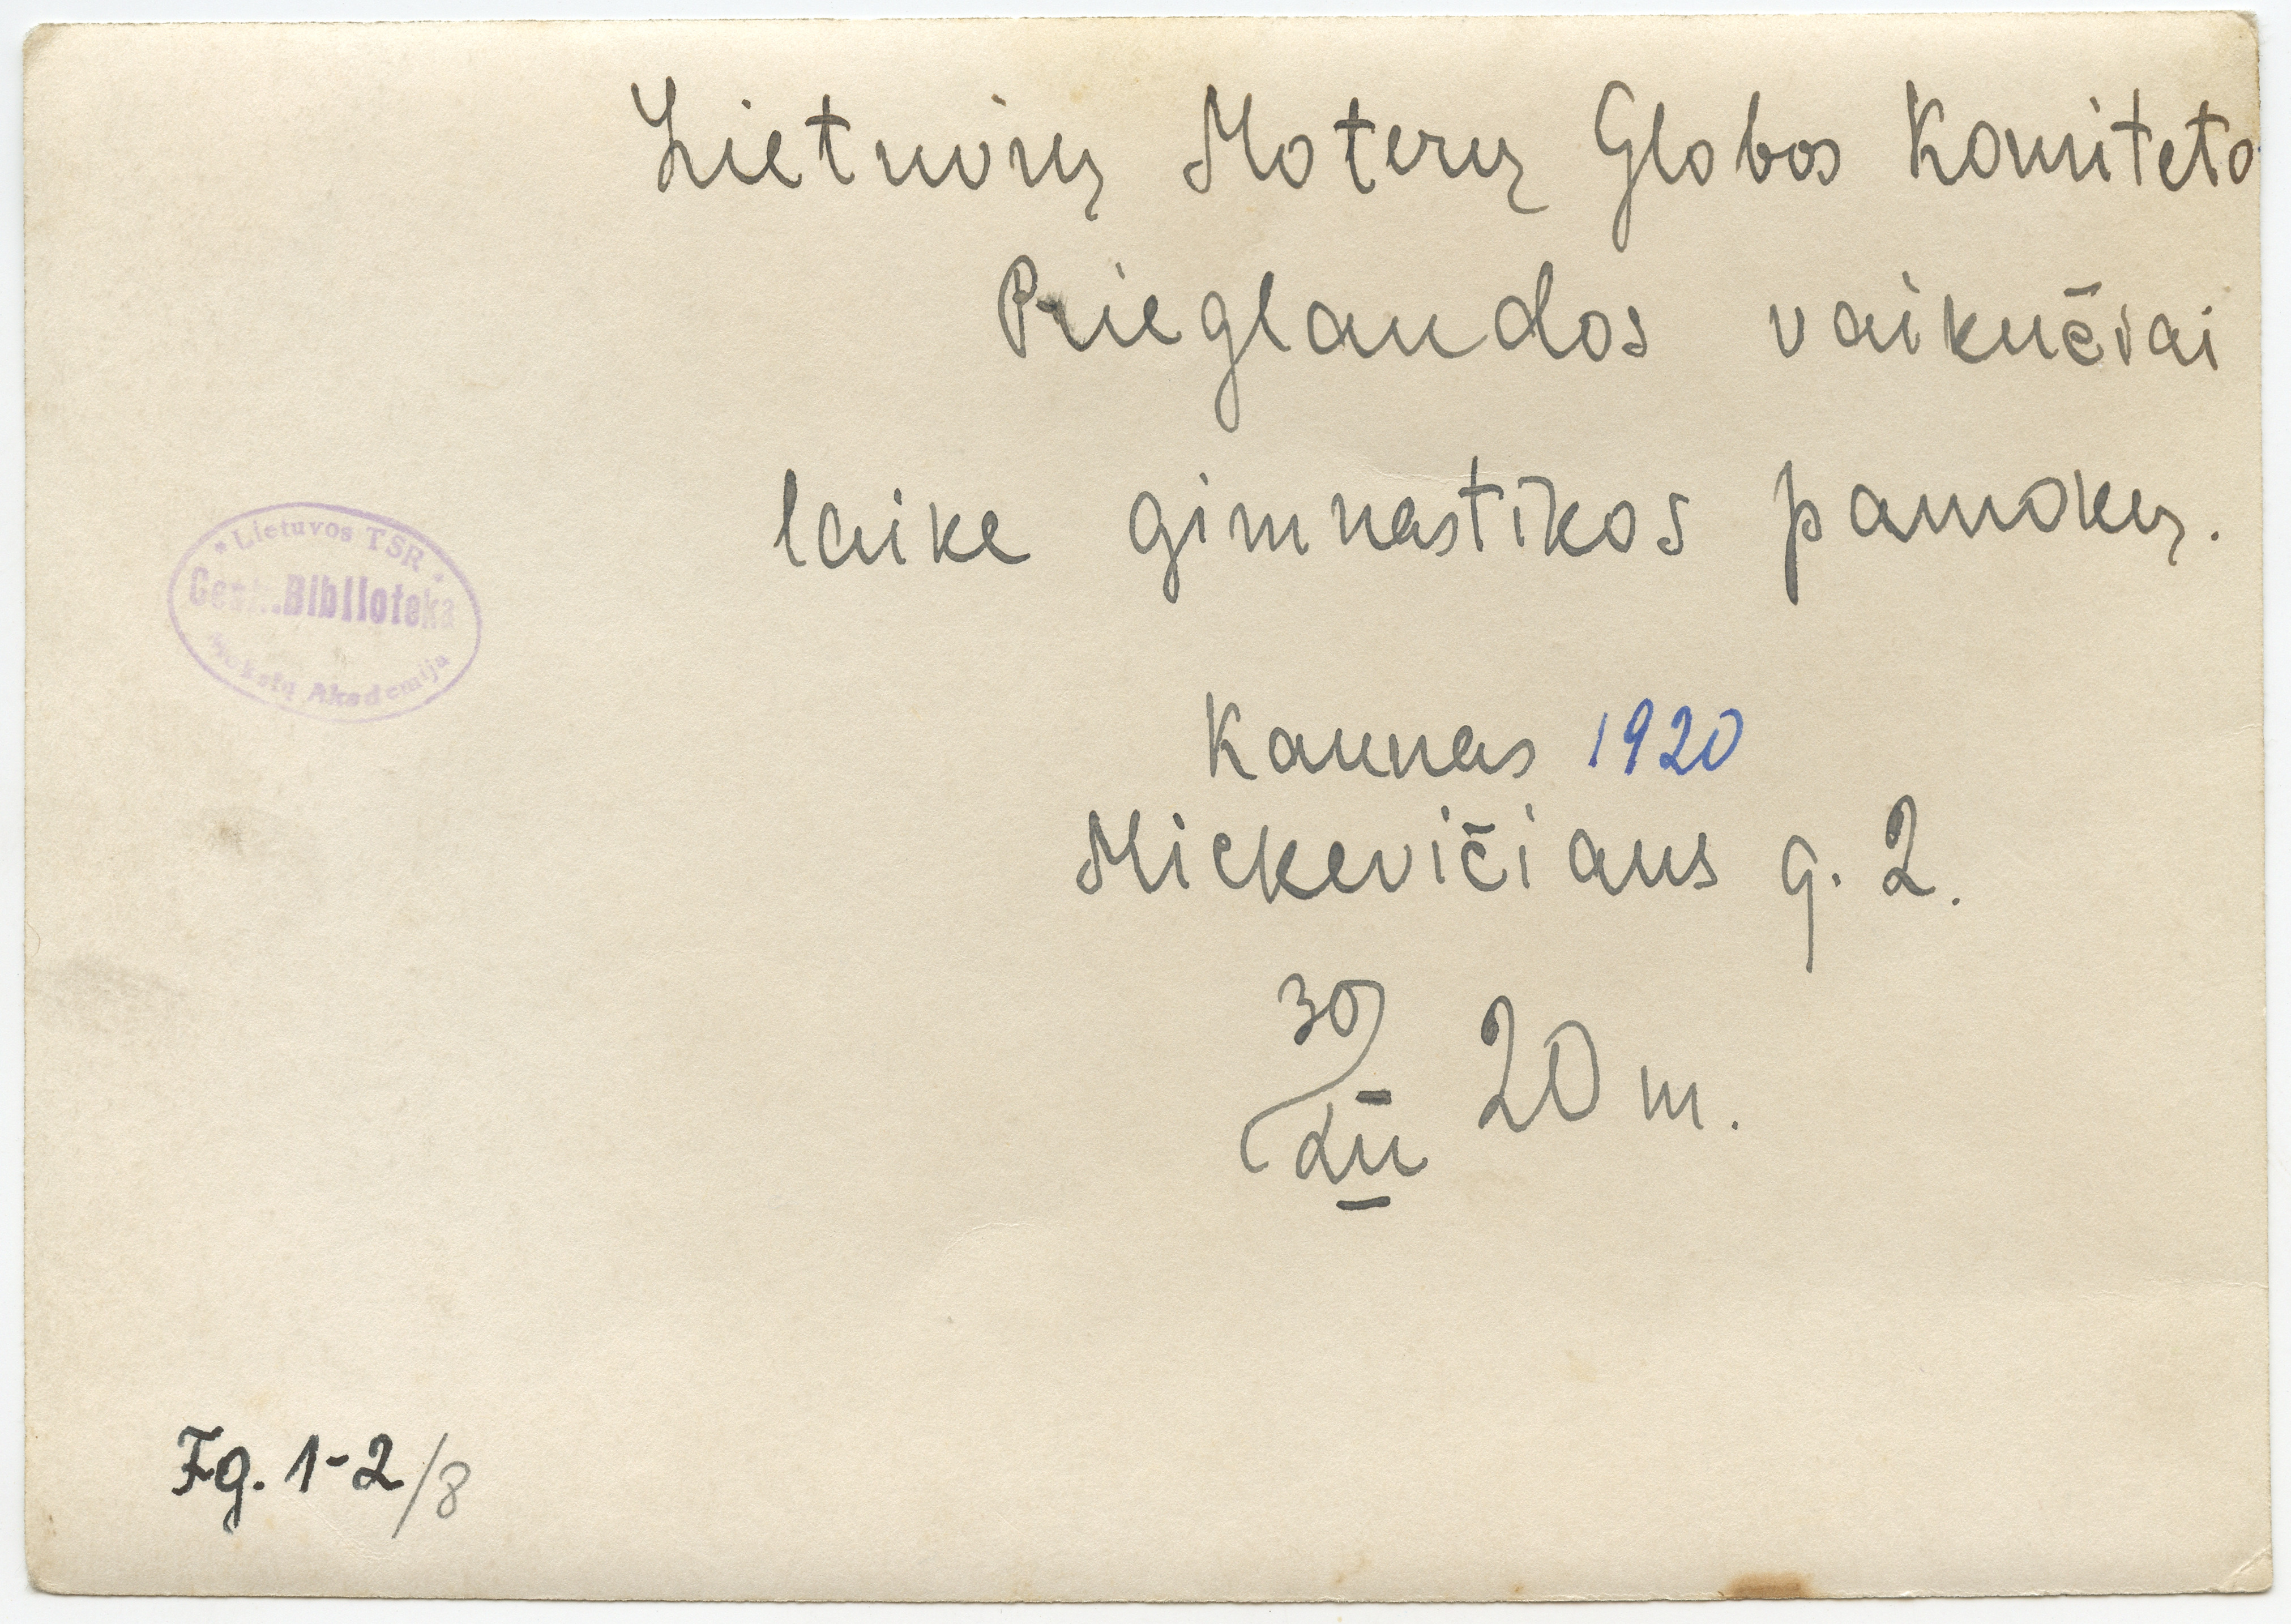 Lietuvių Moterų Globos Komiteto
Prieglaudos vaikučiai
laike gimnastikos pamokų.
* Lietuvos TSR *
Centr. Biblioteka
Mokslų Akademija
Kaunas 1920
Mickevičiaus g. 2.
30/XII 20 m.
Fg. 1-2/8